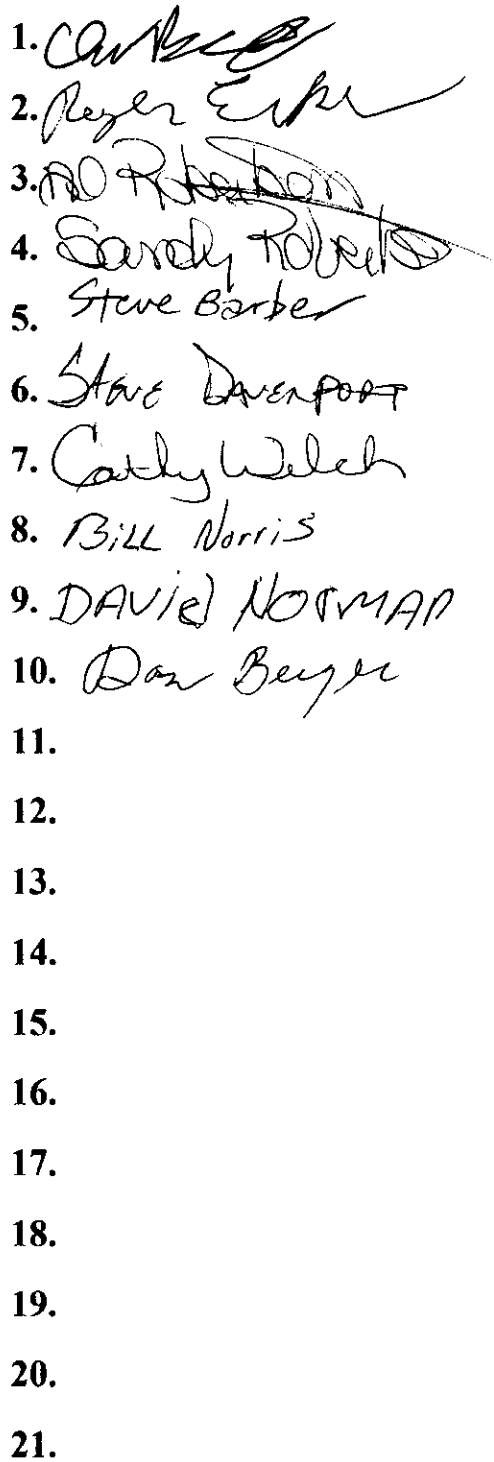 1.
2. Roger
3. Robertson
4. Sandy Roberts
5. Steve Barber
6. STEVE DAVENPORT
7. Cathy Welch
8. BILL Norris
9. DAVId NORMAN
10. Dan Berger
11.
12.
13.
14.
15.
16.
17.
18.
19.
20.
21.